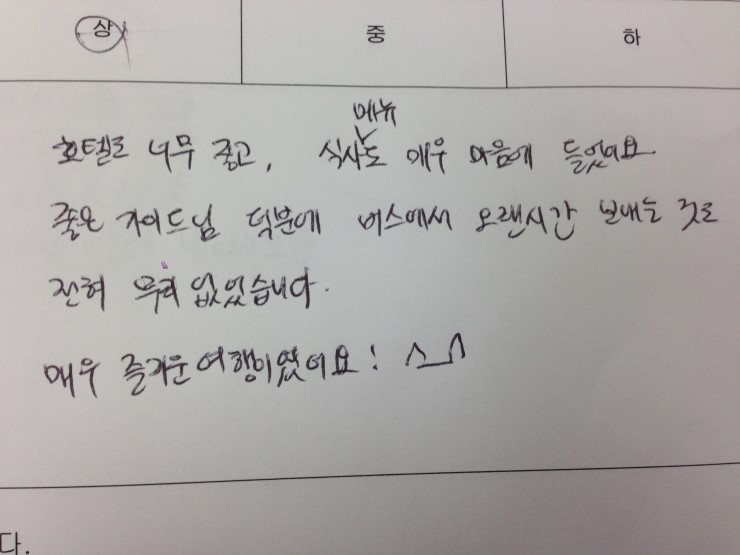 상 중 하
호텔도 너무 좋고, 식사메뉴도 매우 마음에 들었어요
좋은 가이드님 덕분에 버스에서 오랜시간 보내는 것도
전혀 무리 없었습니다.
매우 즐거운 여행이였어요! ^_^
다.